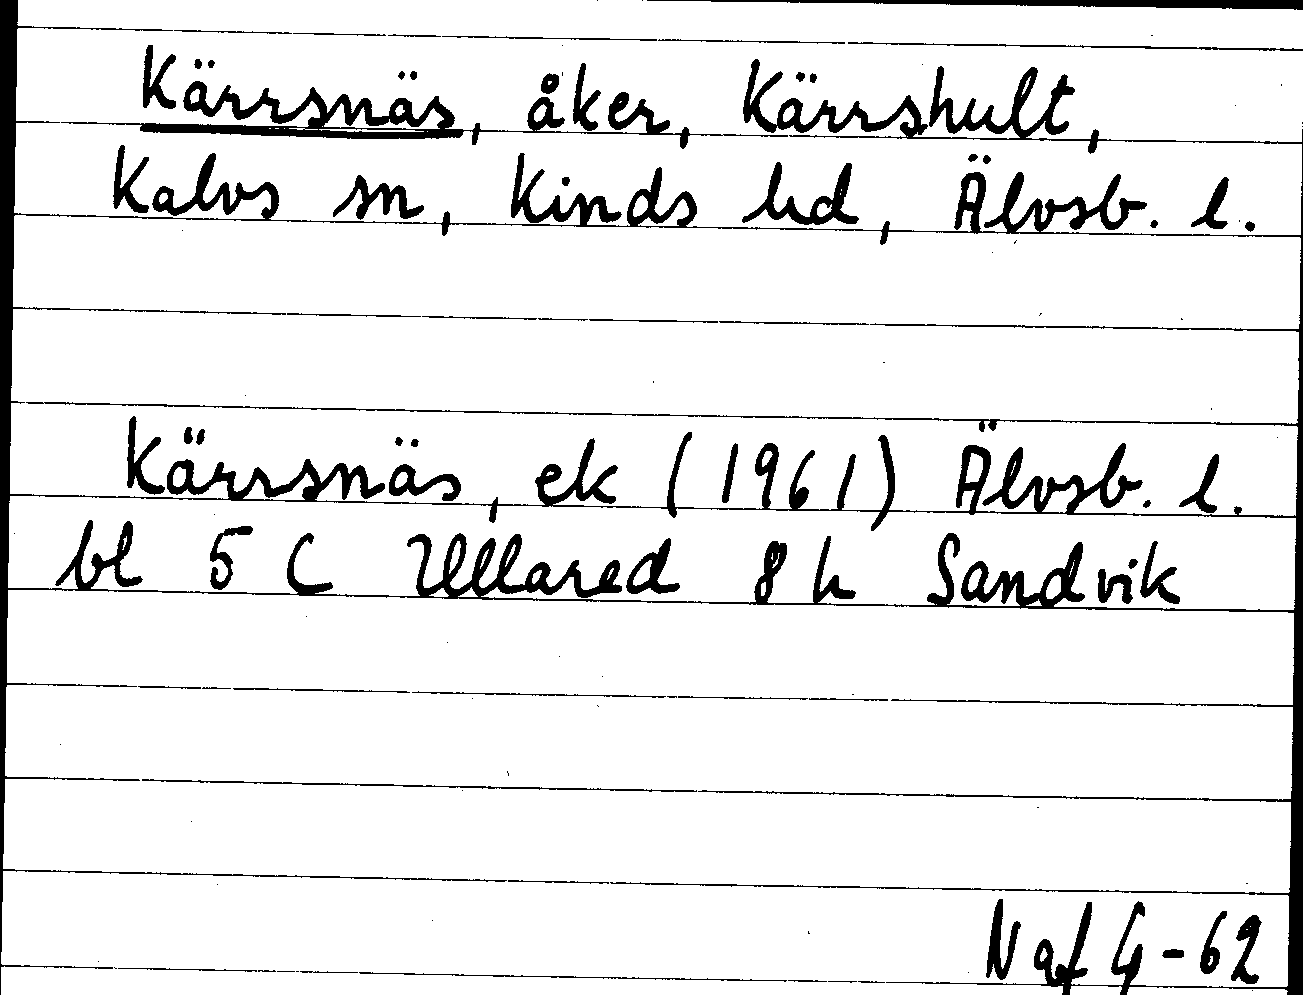 Kärrsnäs, åker, Kärrshult,
Kalvs sn, Kinds hd, Älvsb. l.
Kärrsnäs, ek (1961) Älvsb. l.
bl 5 C Ullared 8 h Sandvik
Naf 4-62